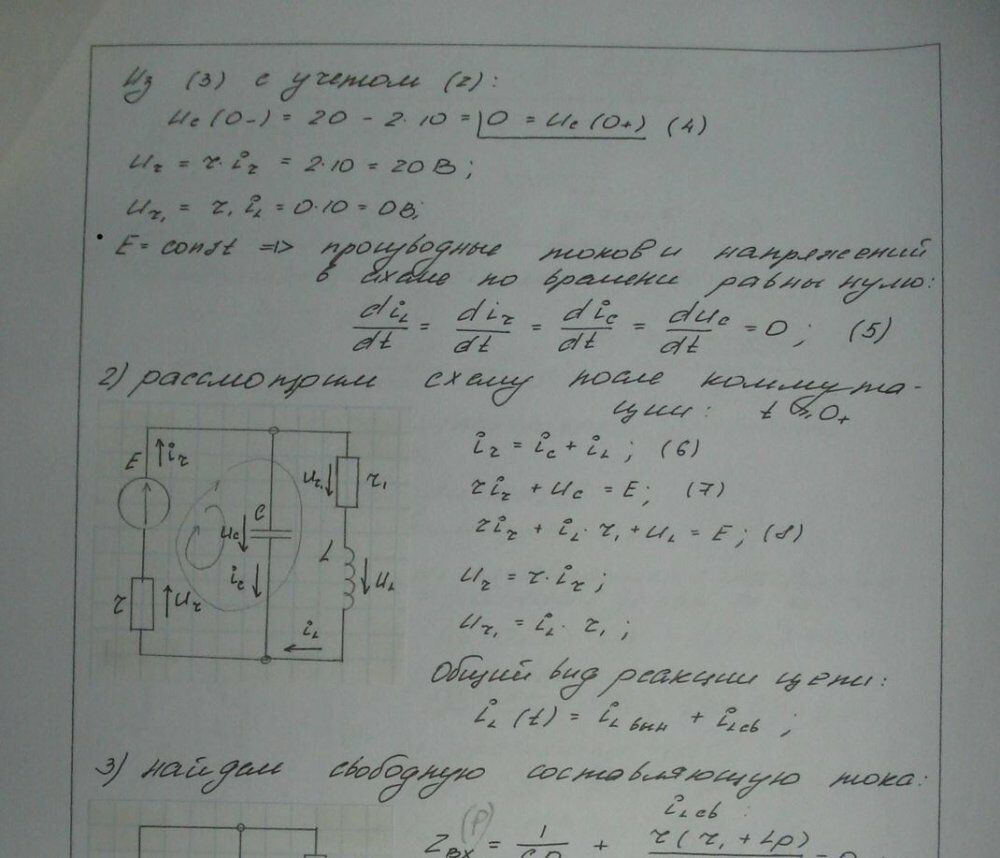 Из (3) с учетом (2):
Uc(0-) = 20 - 2·10 = 0 = Uc(0+) (4)
Ur = r·ir = 2·10 = 20В;
Ur1 = r1 iL = 0·10 = 0В;
E = const => производные токов и напряжений
в схеме по времени равны нулю:
diL/dt = dir/dt = dic/dt = duc/dt = 0; (5)
2) рассмотрим схему после коммута-
ции: t = 0+
E ir
Ur1 r1
C
Uc
L
ic UL
r Ur
iL
ir = ic + iL; (6)
r ir + Uc = E; (7)
r ir + iL·r1 + UL = E; (8)
Ur = r·ir;
Ur1 = iL·r1;
Общий вид реакции цепи:
iL(t) = iL вын + iL св;
3) найдем свободную составляющую тока:
iL св:
Zвх(p) = 1/Cp + r(r1 + Lp)